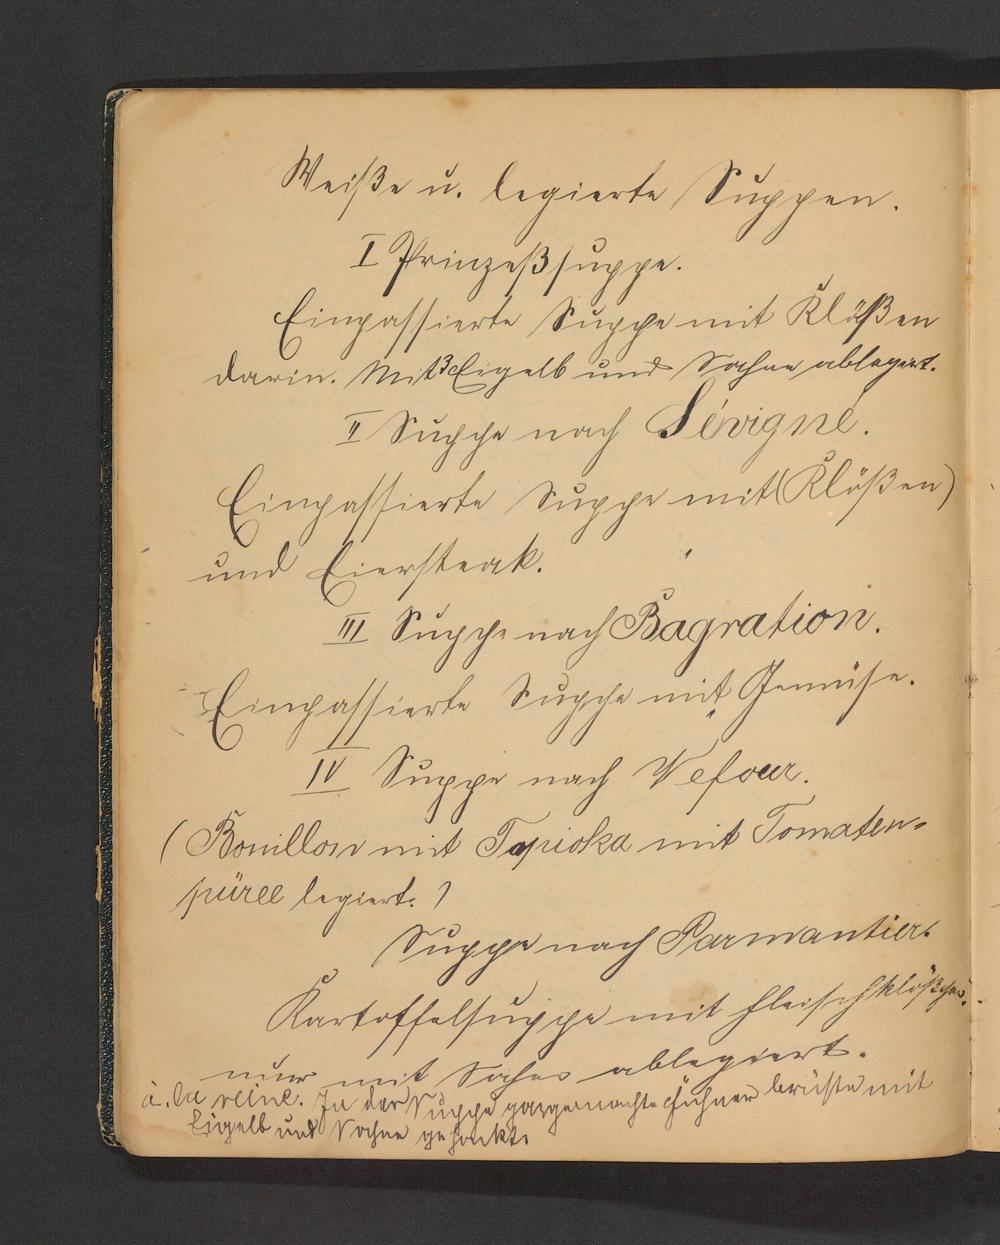 Weiße u. legierte Suppen.
I Prinzeßsuppe.
Einpassierte Suppe mit Klößen
darin. Mit 3 Eigelb und Sahne ablegirt.
II Suppe nach Sévigné.
Einpassierte Suppe mit (Klößen)
und Eiersteak.
III Suppe nach Bagration.
Einpassierte Suppe mit Gemüse.
IV Suppe nach Vefour.
(Bouillon mit Tapioka mit Tomaten-
püree legiert.)
Suppe nach Parmantier.
Kartoffelsuppe mit Fleischklößchen.
nur mit Sahne ablegiert.
à. la reine. In der Suppe gargemachte Hühnerbrüste mit
Eigelb und Sahne gehackt.